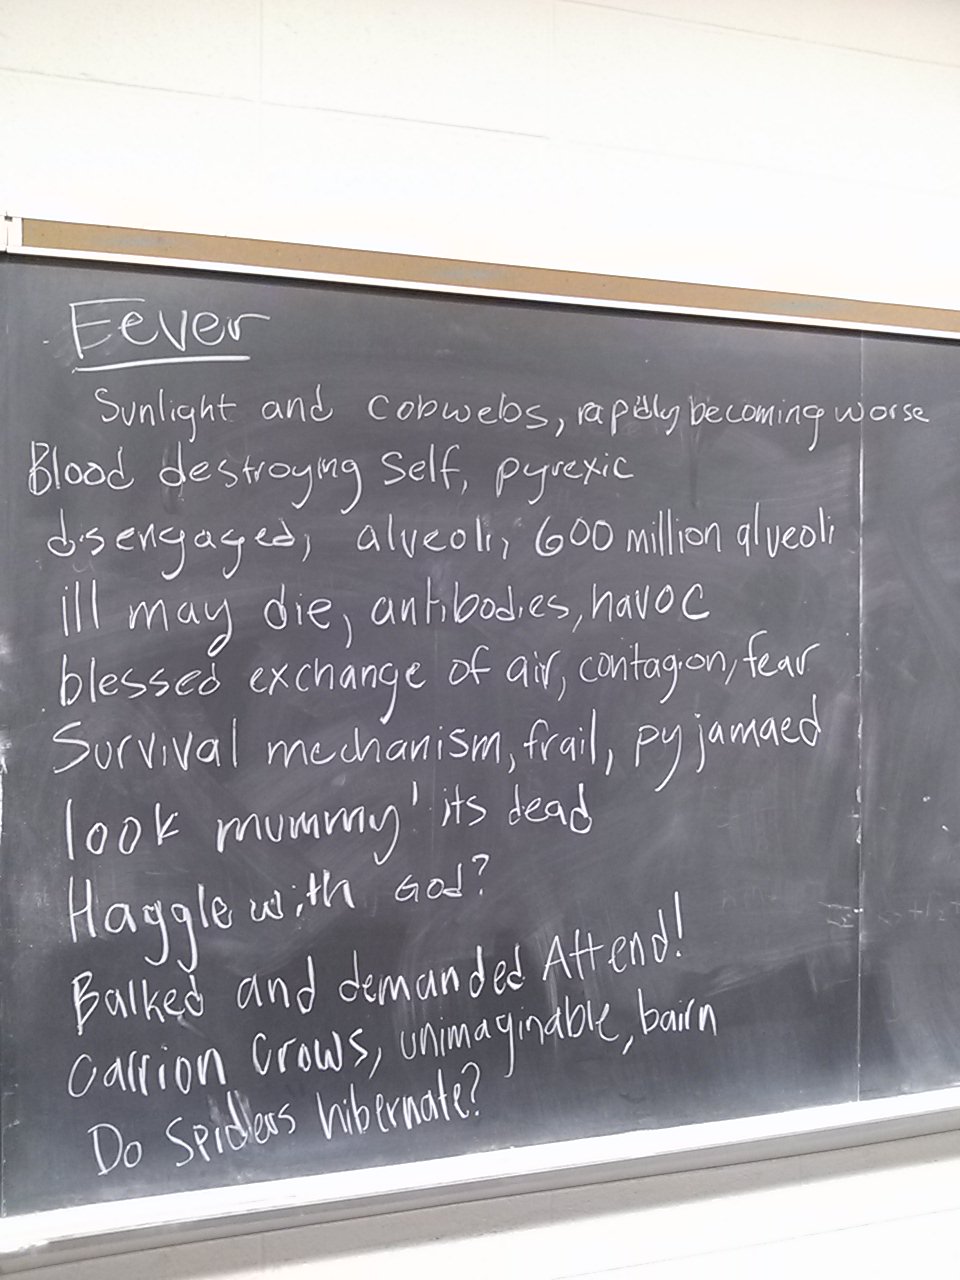 Fever
Sunlight and cobwebs, rapidly becoming worse
Blood destroying Self, pyrexic
disengaged, alveoli, 600 million alveoli
ill may die, antibodies, havoc
blessed exchange of air, contagion, fear
Survival mechanism, frail, pyjamaed
look mummy' its dead
Haggle with God?
Balked and demanded Attend!
Carrion Crows, unimaginable, bairn
Do Spiders hibernate?